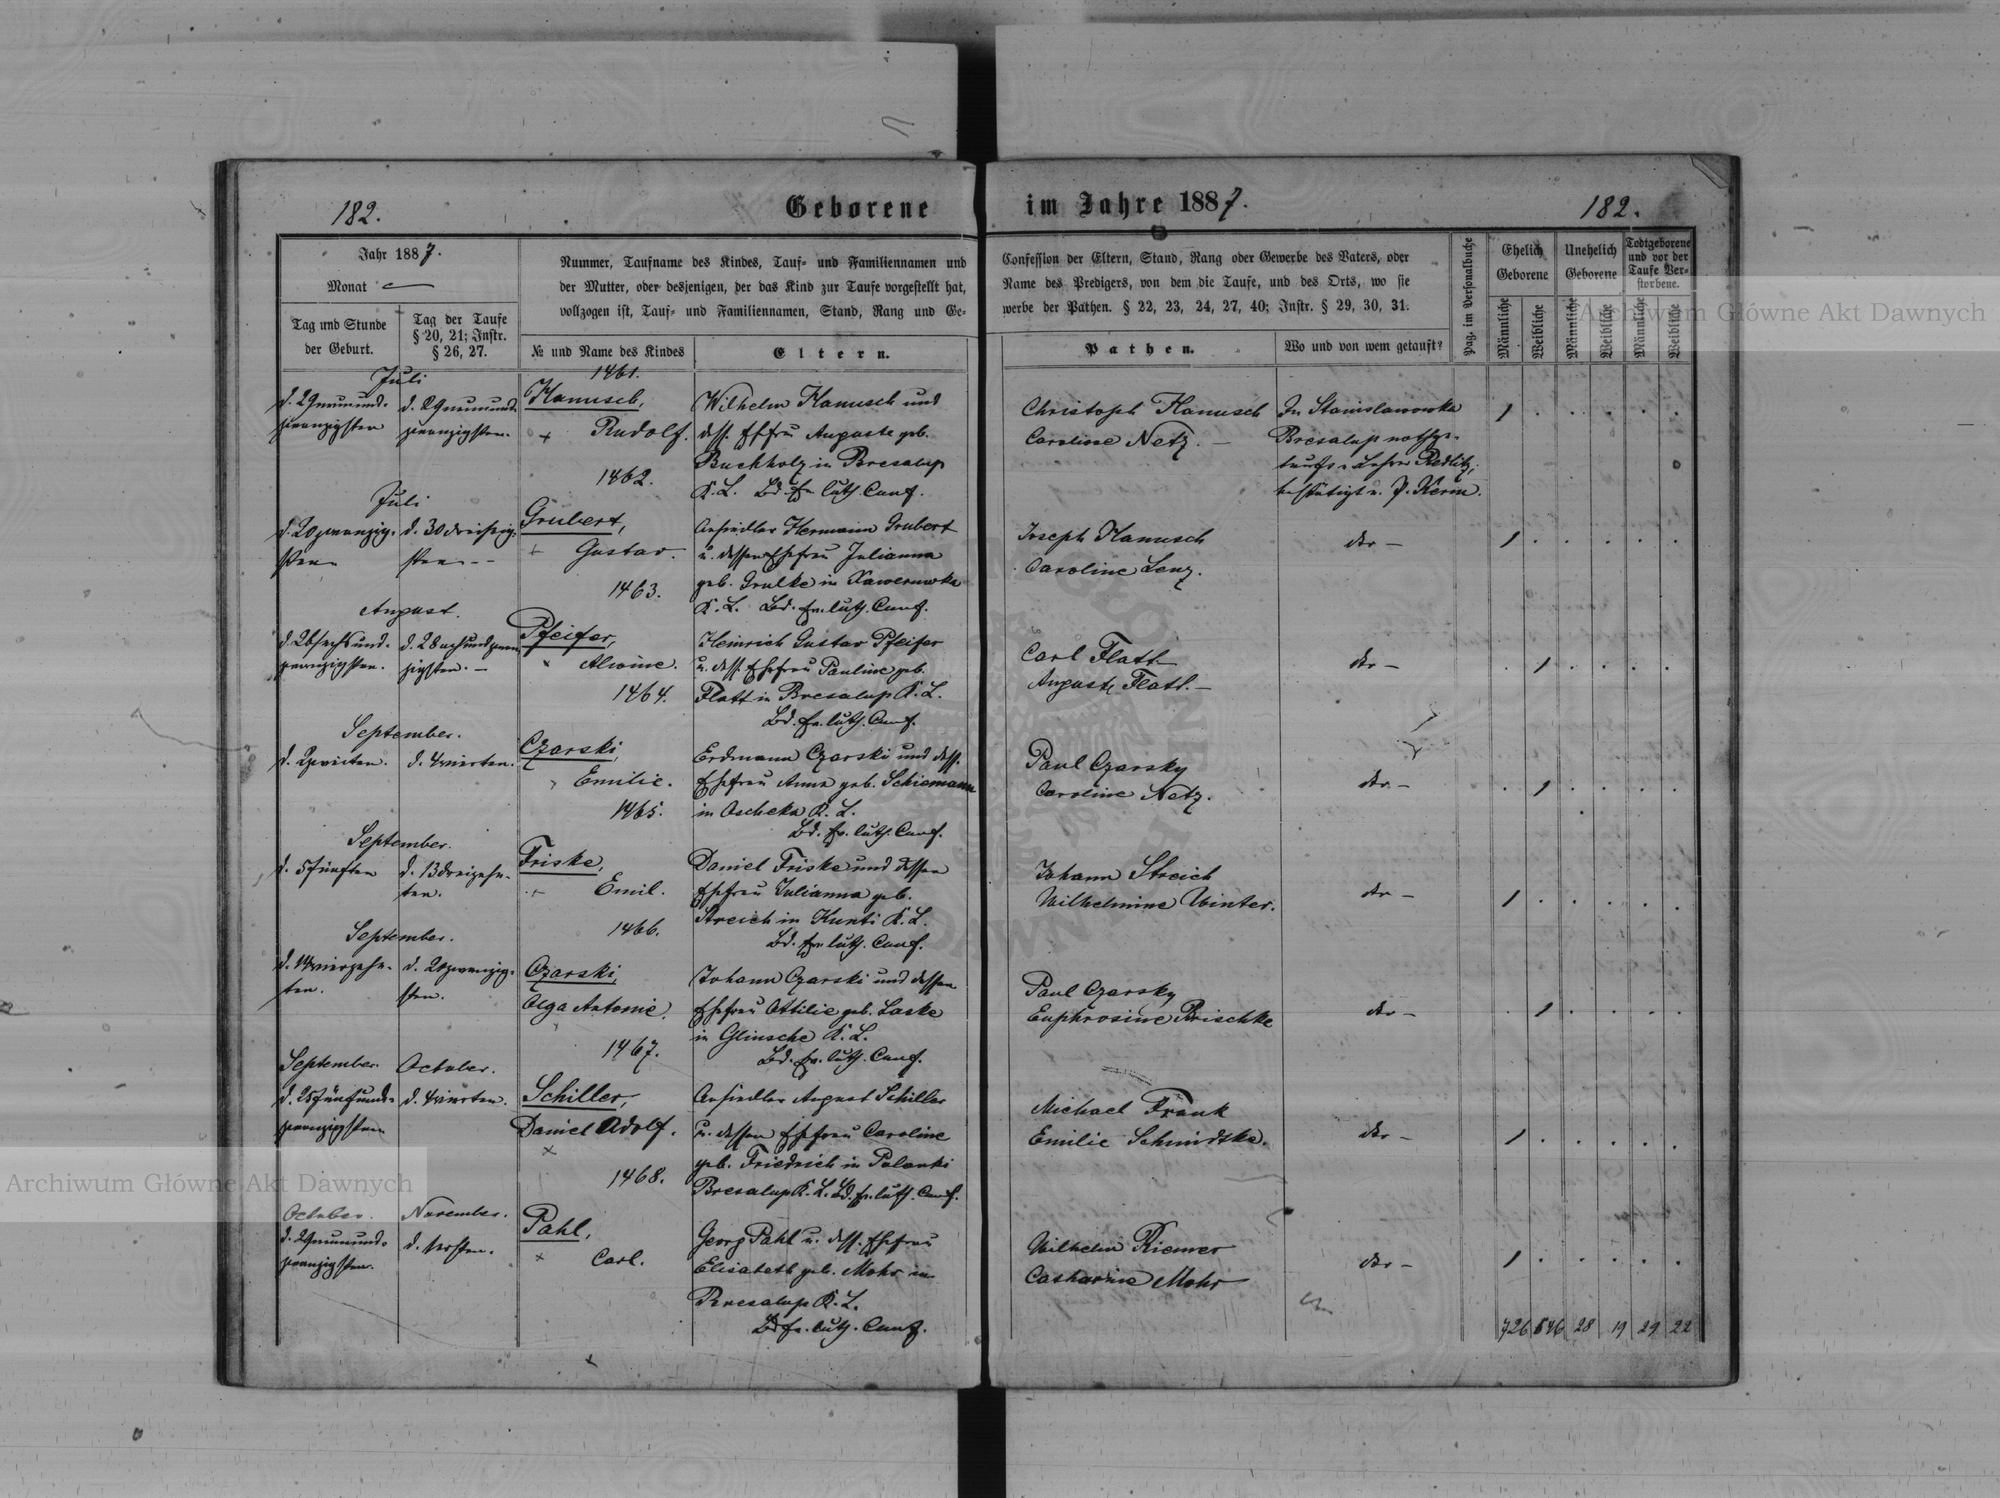 182.
Geborene
im Jahre 1887.
182.
Jahr 1887.
Monat
Tag und Stunde
der Geburt.
Tag der Taufe
§ 20, 21; Instr.
§ 26, 27.
Nummer, Taufname des Kindes, Tauf- und Familiennamen und
der Mutter, oder desjenigen, der das Kind zur Taufe vorgestellt hat,
vollzogen ist, Tauf- und Familiennamen, Stand, Rang und Ge-
№ und Name des Kindes
Eltern.
Confession der Eltern, Stand, Rang oder Gewerbe des Vaters, oder
Name des Predigers, von dem die Taufe, und des Orts, wo sie
werbe der Pathen. § 22, 23, 24, 27, 40; Instr. § 29, 30, 31.
Pathen.
Wo und von wem getauft?
Pag. im Personalbuche
Ehelich
Geborene
Unehelich
Geborene
Todtgeborene
und vor der
Taufe Ver-
storbene.
Männliche
Weibliche
Männliche
Weibliche
Männliche
Weibliche
Juli
d. 29 neunund-
zwanzigsten
d. 29 neunund-
zwanzigsten.
1461.
Hanusch,
Rudolf.
Wilhelm Hanusch und
dess. Ehefrau Auguste geb.
Buchholz in Bresalup
K. L. Bd. ev. luth. Conf.
Christoph Hanusch
Caroline Netz. —
In Stanislawowka
Bresalup nothge-
tauft v. Lehrer Redlitz,
bestätigt v. P. Kerm.
Juli
d. 20 zwanzig-
sten
d. 30 dreißig-
sten
1462.
Grubert,
Gustav.
Ansiedler Hermann Grubert
u. dessen Ehefrau Julianna
geb. Grulke in Xawerowka
K. L. Bd. ev. luth. Conf.
Joseph Hanusch
Caroline Lenz.
dto —
August.
d. 26 sechsund-
zwanzigsten.
d. 28 achtundzwan-
zigsten. —
1463.
Pfeifer,
Alwine.
Heinrich Gustav Pfeifer
u. dess. Ehefrau Pauline geb.
Flatt in Bresalup K. L.
Bd. ev. luth. Conf.
Carl Flatt
Auguste Flatt. —
dto —
September.
d. 2 zweiten.
d. 4 vierten.
1464.
Czarski,
Emilie.
Erdmann Czarski und dess.
Ehefrau Anna geb. Schiemann
in Oscheka K. L.
Bd. ev. luth. Conf.
Paul Czarsky
Caroline Netz.
dto —
September.
d. 5 fünften
d. 13 dreizehn-
ten.
1465.
Friske,
Emil.
Daniel Friske und dessen
Ehefrau Julianna geb.
Streich in Kunti K. L.
Bd. ev. luth. Conf.
Johann Streich
Wilhelmine Winter.
dto —
September.
d. 14 vierzehn-
ten.
d. 20 zwanzig-
sten.
1466.
Czarski,
Olga Antonie.
Johann Czarski und dessen
Ehefrau Ottilie geb. Laske
in Glinsche K. L.
Bd. ev. luth. Conf.
Paul Czarsky
Euphrosine Prischke
dto —
September.
October.
d. 25 fünfund-
zwanzigsten
d. 4 vierten.
1467.
Schiller,
Daniel Adolf.
Ansiedler August Schiller
u. dessen Ehefrau Caroline
geb. Friedrich in Polanki
Bresalup K. L. Bd. ev. luth. Conf.
Michael Frank
Emilie Schmidtke.
dto —
October.
November.
d. 29 neunund-
zwanzigsten.
d. 1 ersten.
1468.
Pahl,
Carl.
Georg Pahl u. dess. Ehefrau
Elisabeth geb. Mohr in
Bresalup K. L.
Bd. ev. luth. Conf.
Wilhelm Riemer
Catharine Mohr
dto —
726 646 28 19 29 22
Archiwum Główne Akt Dawnych
Archiwum Główne Akt Dawnych